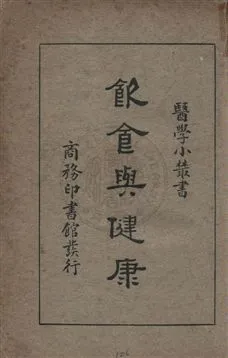 醫學小叢書
飲食與健康
商務印書館發行